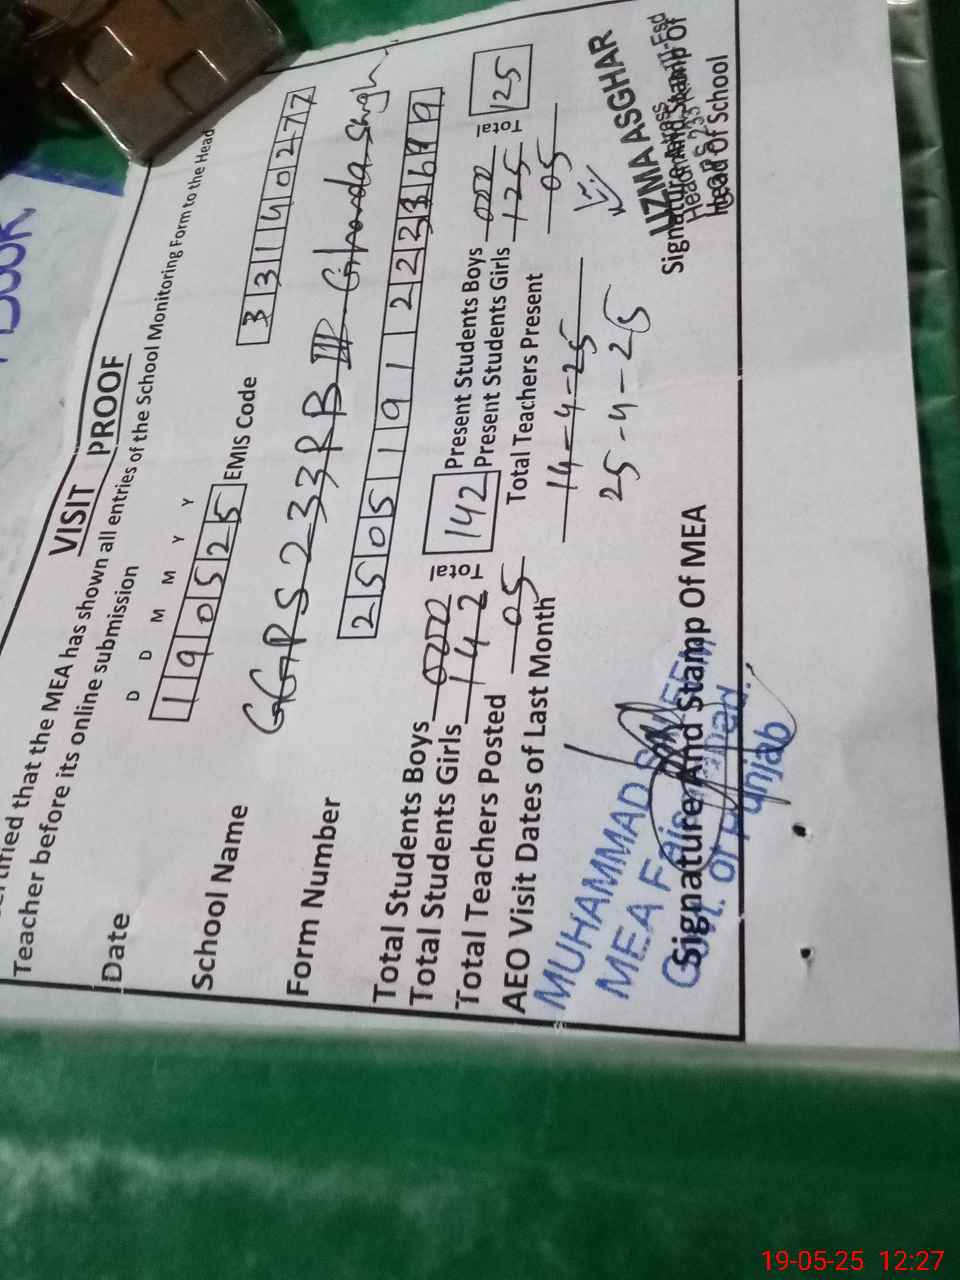 VISIT PROOF
ertified that the MEA has shown all entries of the School Monitoring Form to the Head
Teacher before its online submission
D D M M Y Y
Date 190525 EMIS Code 33140277
School Name GGPS 233 RB III
Form Number 250519122233679
Total Students Boys 000 Total 142 Present Students Boys 000 Total 125
Total Students Girls 142 Present Students Girls 125
Total Teachers Posted 05 Total Teachers Present 05
AEO Visit Dates of Last Month 14-4-25
25-4-25
MUHAMMAD
MEA
Govt. Of Punjab
Signature And Stamp Of MEA
UZMA ASGHAR
Signature And Stamp Of
Head Of School
19-05-25 12:27